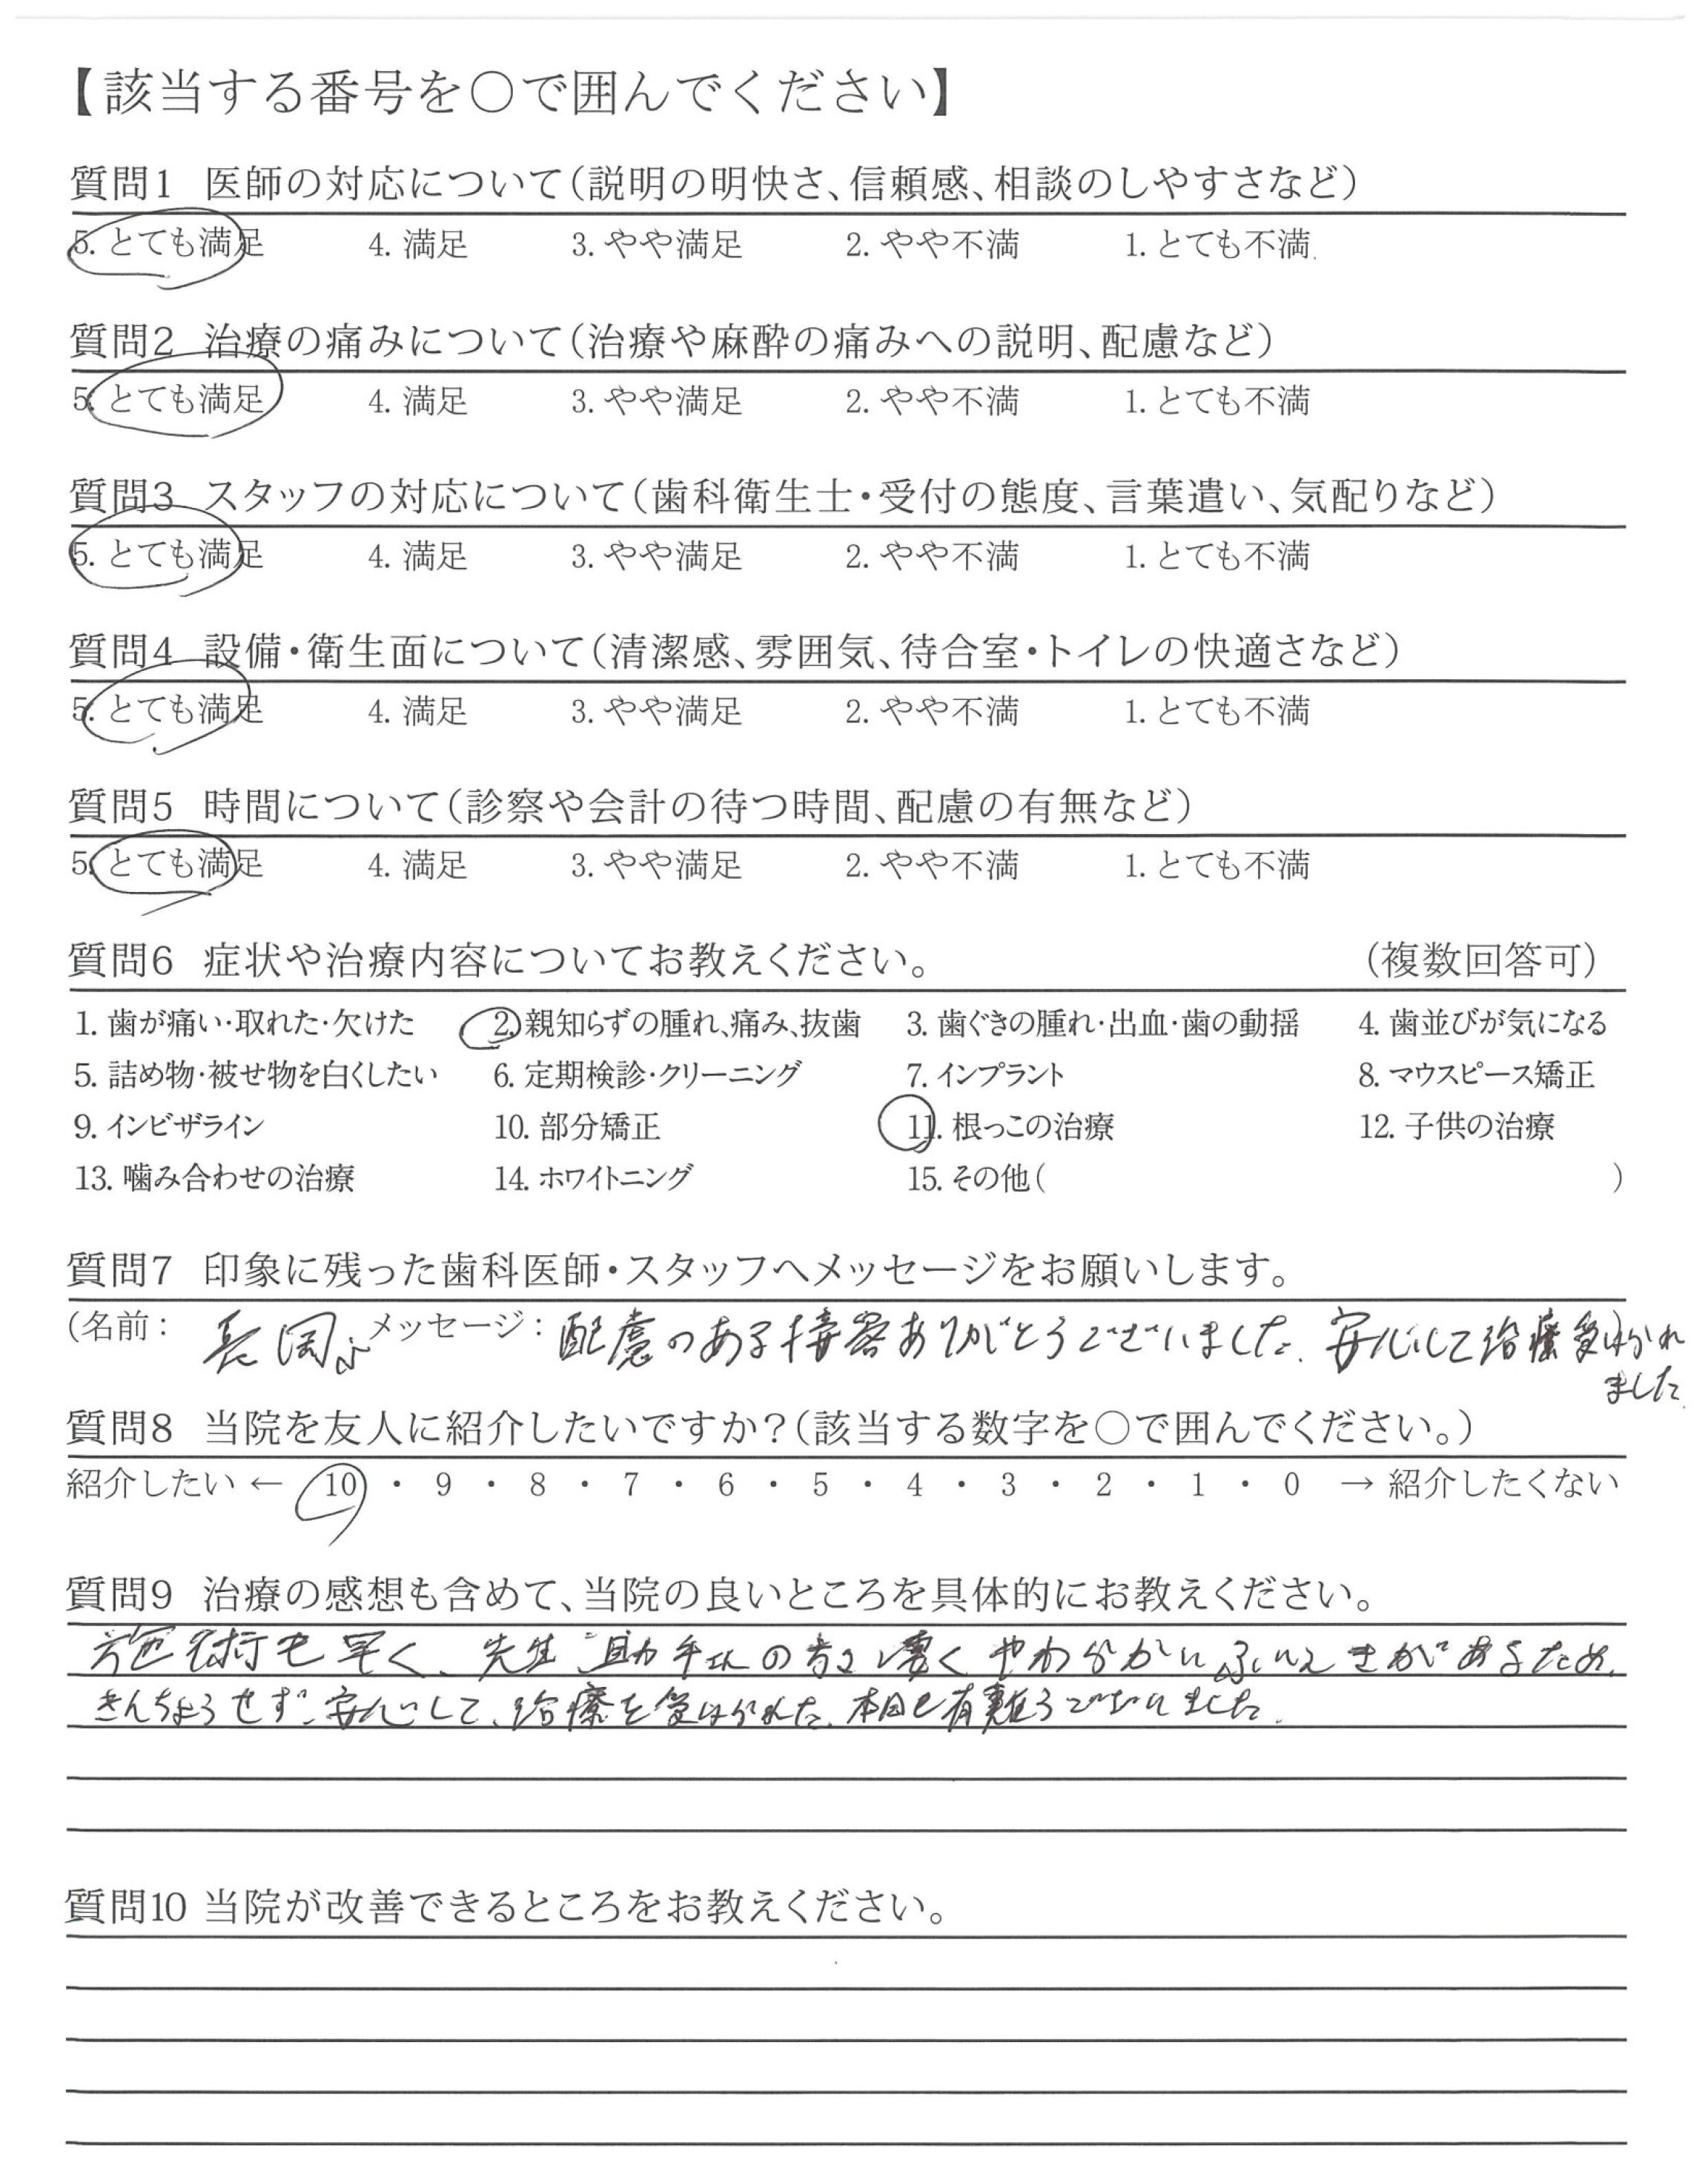 【該当する番号を○で囲んでください】
質問1 医師の対応について(説明の明快さ、信頼感、相談のしやすさなど)
5. とても満足 4. 満足 3. やや満足 2. やや不満 1. とても不満
質問2 治療の痛みについて(治療や麻酔の痛みへの説明、配慮など)
5. とても満足 4. 満足 3. やや満足 2. やや不満 1. とても不満
質問3 スタッフの対応について(歯科衛生士・受付の態度、言葉遣い、気配りなど)
5. とても満足 4. 満足 3. やや満足 2. やや不満 1. とても不満
質問4 設備・衛生面について(清潔感、雰囲気、待合室・トイレの快適さなど)
5. とても満足 4. 満足 3. やや満足 2. やや不満 1. とても不満
質問5 時間について(診察や会計の待つ時間、配慮の有無など)
5. とても満足 4. 満足 3. やや満足 2. やや不満 1. とても不満
質問6 症状や治療内容についてお教えください。 (複数回答可)
1. 歯が痛い・取れた・欠けた 2. 親知らずの腫れ、痛み、抜歯 3. 歯ぐきの腫れ・出血・歯の動揺 4. 歯並びが気になる
5. 詰め物・被せ物を白くしたい 6. 定期検診・クリーニング 7. インプラント 8. マウスピース矯正
9. インビザライン 10. 部分矯正 11. 根っこの治療 12. 子供の治療
13. 噛み合わせの治療 14. ホワイトニング 15. その他( )
質問7 印象に残った歯科医師・スタッフへメッセージをお願いします。
(名前: 長岡 メッセージ: 配慮のある接客ありがとうございました。安心して治療受けられ
ました
質問8 当院を友人に紹介したいですか?(該当する数字を○で囲んでください。)
紹介したい ← 10 ・ 9 ・ 8 ・ 7 ・ 6 ・ 5 ・ 4 ・ 3 ・ 2 ・ 1 ・ 0 → 紹介したくない
質問9 治療の感想も含めて、当院の良いところを具体的にお教えください。
施術も早く、先生、助手さんの方も凄くやわらかいふいんきがあるため、
きんちょうせず、安心して、治療を受けられた。本日も有難うございました。
質問10 当院が改善できるところをお教えください。